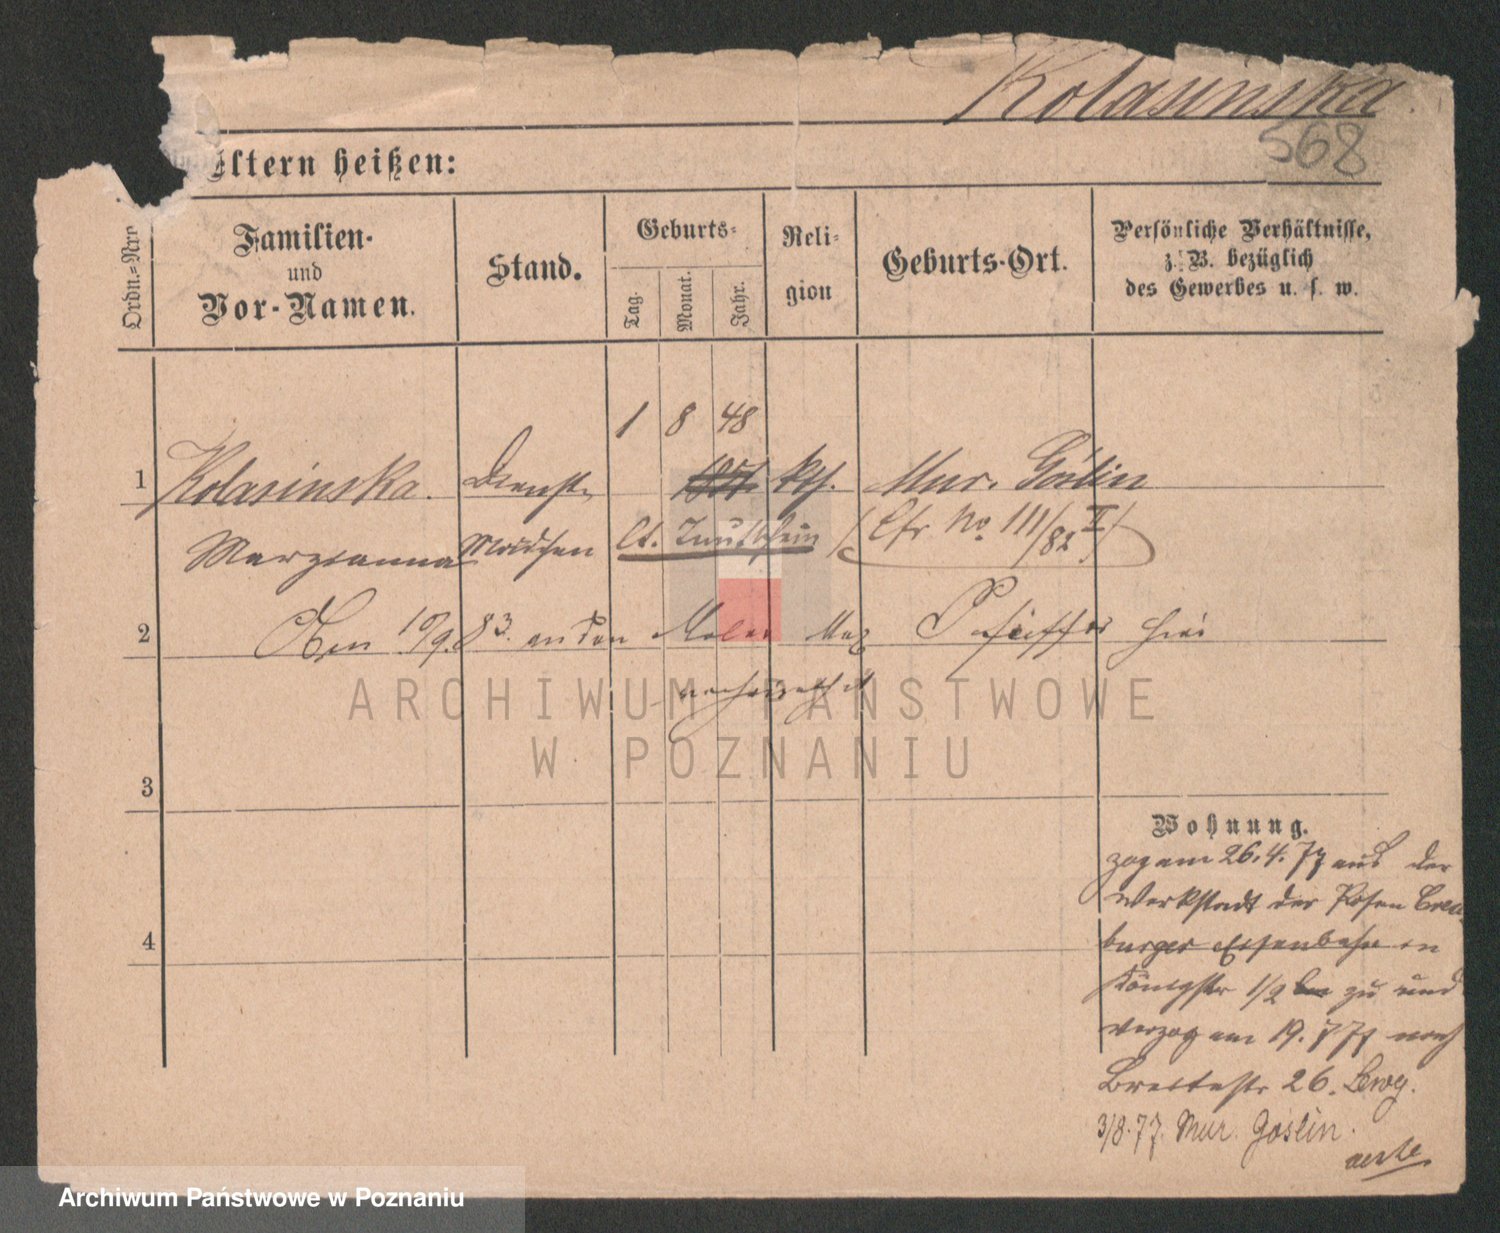 Kolasinska.
568
Eltern heißen:
Ordn.-Nro
Familien-
und
Vor-Namen.
Stand.
Geburts-
Tag.
Monat.
Jahr.
Reli-
gion
Geburts-Ort.
Persönliche Verhältnisse,
z. B. bezüglich
des Gewerbes u. s. w.
1 8 48
1 Kolasinska. Dienst- kth. Mur. Goslin
Marzianna Mädchen lt. Taufschein (Cfr No. 111/82 II)
2 10/9. 83. an den Maler Max Pfeiffer hier
3
4
Wohnung.
zog am 26.4.77 aus der
Werkstadt der Posen Creuz-
burger Eisenbahn in
Königstr 1/2 zu und
verzog am 19. 7 77 nach
Breitestr 26.
3/8. 77. Mur. Goslin.
ARCHIWUM PAŃSTWOWE
W POZNANIU
Archiwum Państwowe w Poznaniu